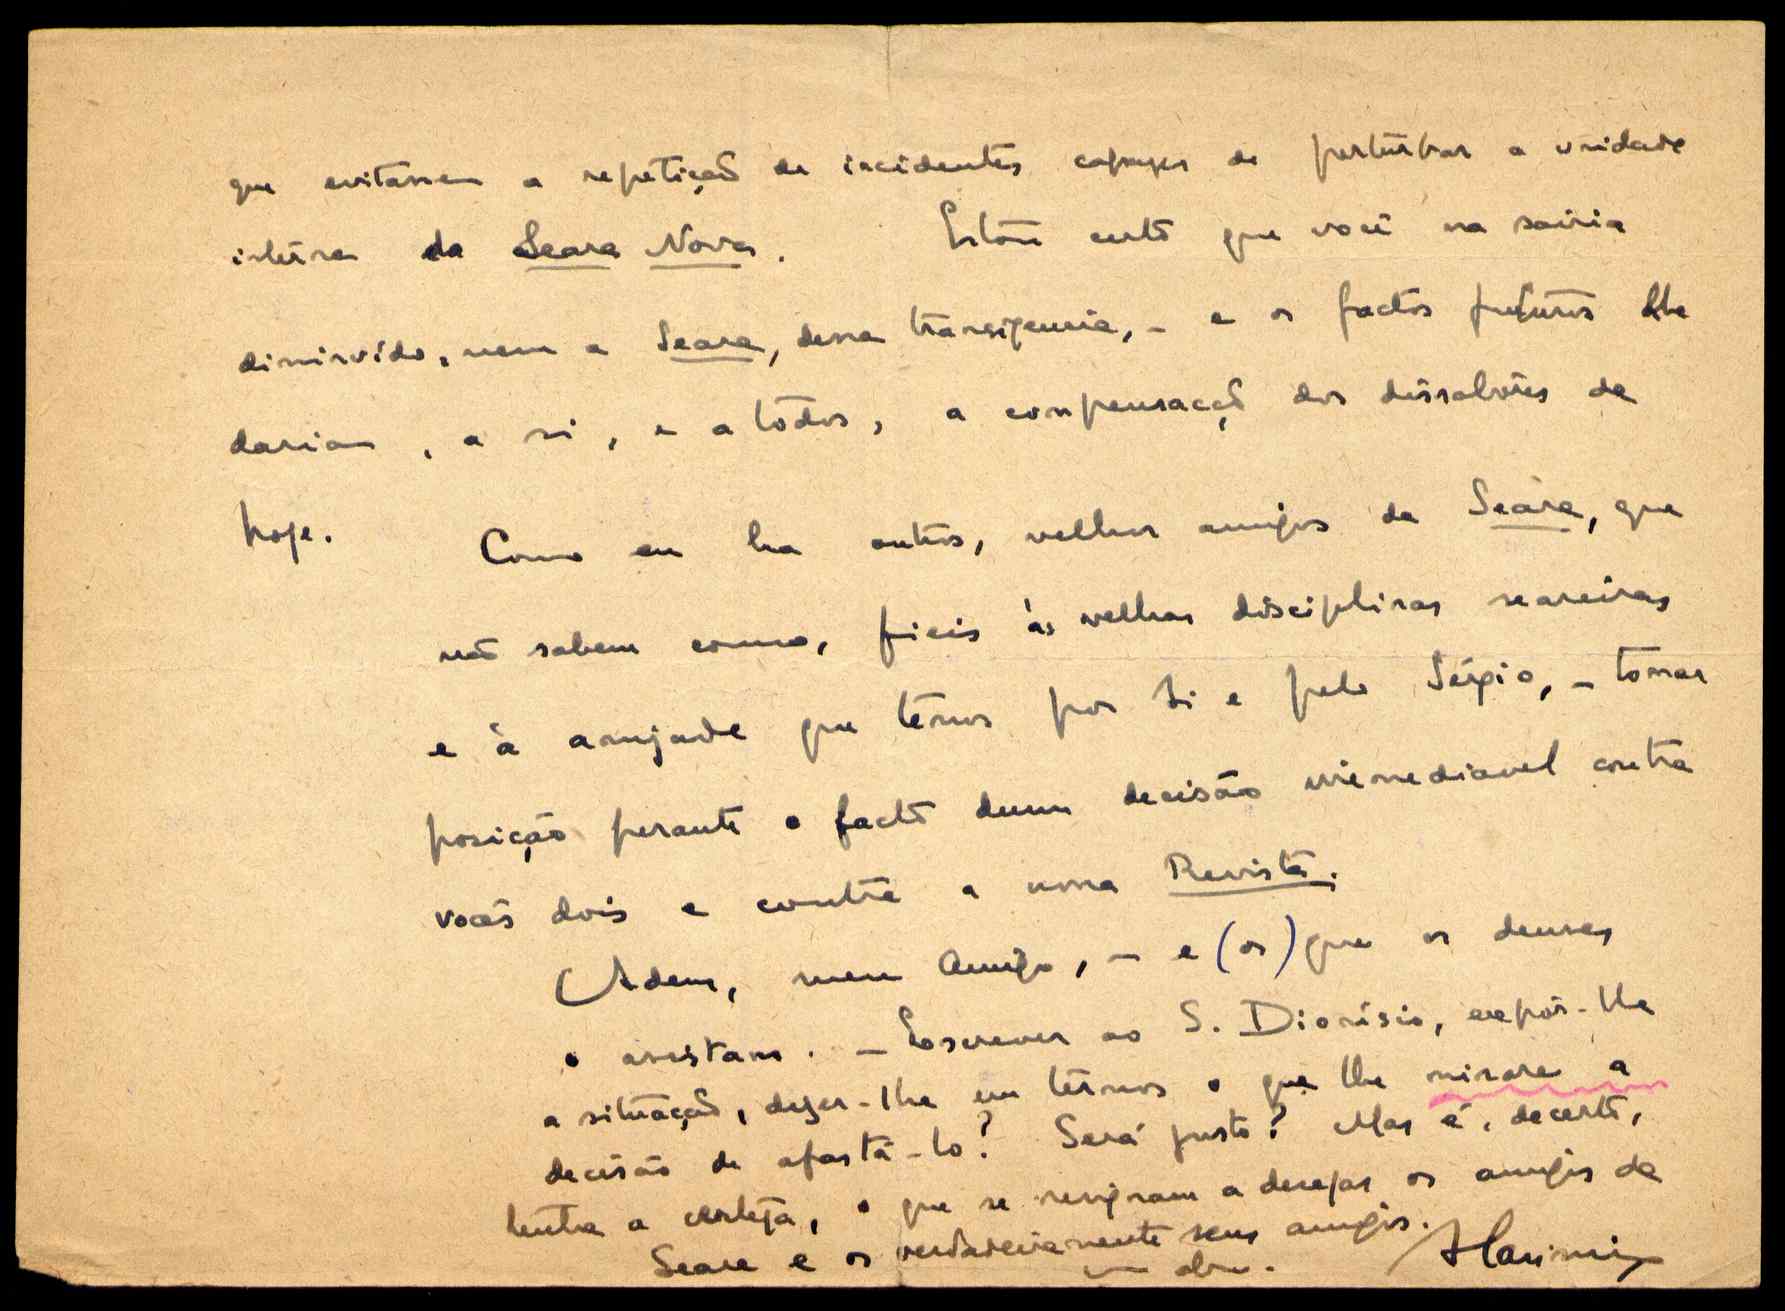 que evitassem a repetição de incidentes capazes de perturbar a unidade
interna da Seara Nova. Estou certo que você na sairia
diminuído, nem a Seara, dessa transigencia, – e os factos futuros lhe
dariam, a si, e a todos, a compensação dos dissabôres de
hoje. Como eu ha outros, velhos amigos da Seara, que
não sabem como, fieis às velhas disciplinas seareiras
e à amizade que têmos por si e pelo Sérgio, – tomar
posição perante o facto duma decisão irremediavel contra
vocês dois e contra a nossa Revista.
Adeus, meu Amigo, – e (os) que os deuses
o assistam. – Escrever ao S. Dionísio, expôr-lhe
a situação, dizer-lhe em têrmos o que lhe a
decisão de afastá-lo? Será justo? Mas é, decerto,
tenha a certeza, o que se resignam a desejar os amigos da
Seara e os verdadeiramente seus amigos.
um abr.